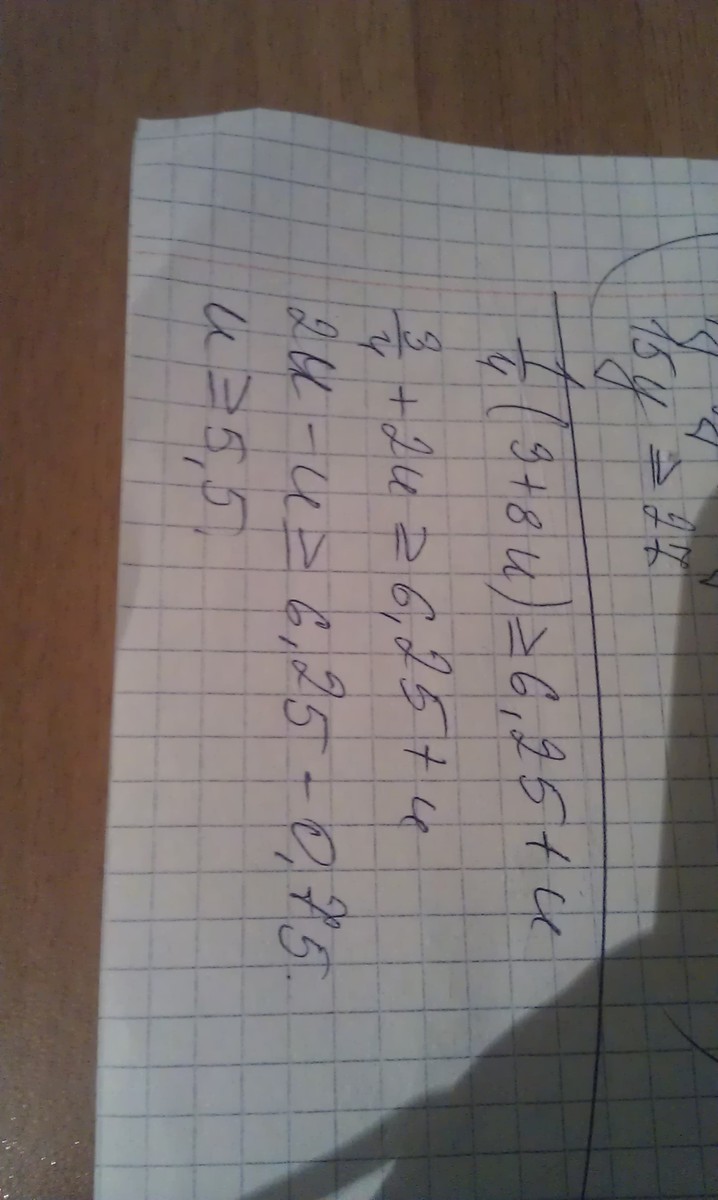 15y ≥ 27
1/4 (3+8u) ≥ 6,25+u
3/4 + 2u ≥ 6,25+u
2u-u ≥ 6,25-0,75.
u ≥ 5,5.